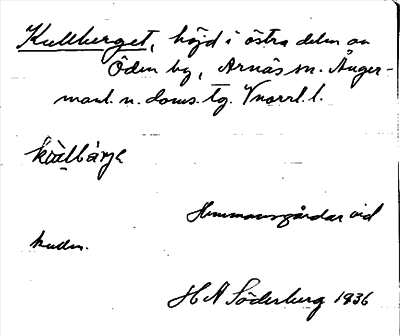 Kullberget, höjd i östra delen av
Öden by, Arnäs sn. Ånger-
manl. n. doms. tg. Vnorrl. l.
Hemmansgårdar vid
kuden.
H A Söderberg 1936